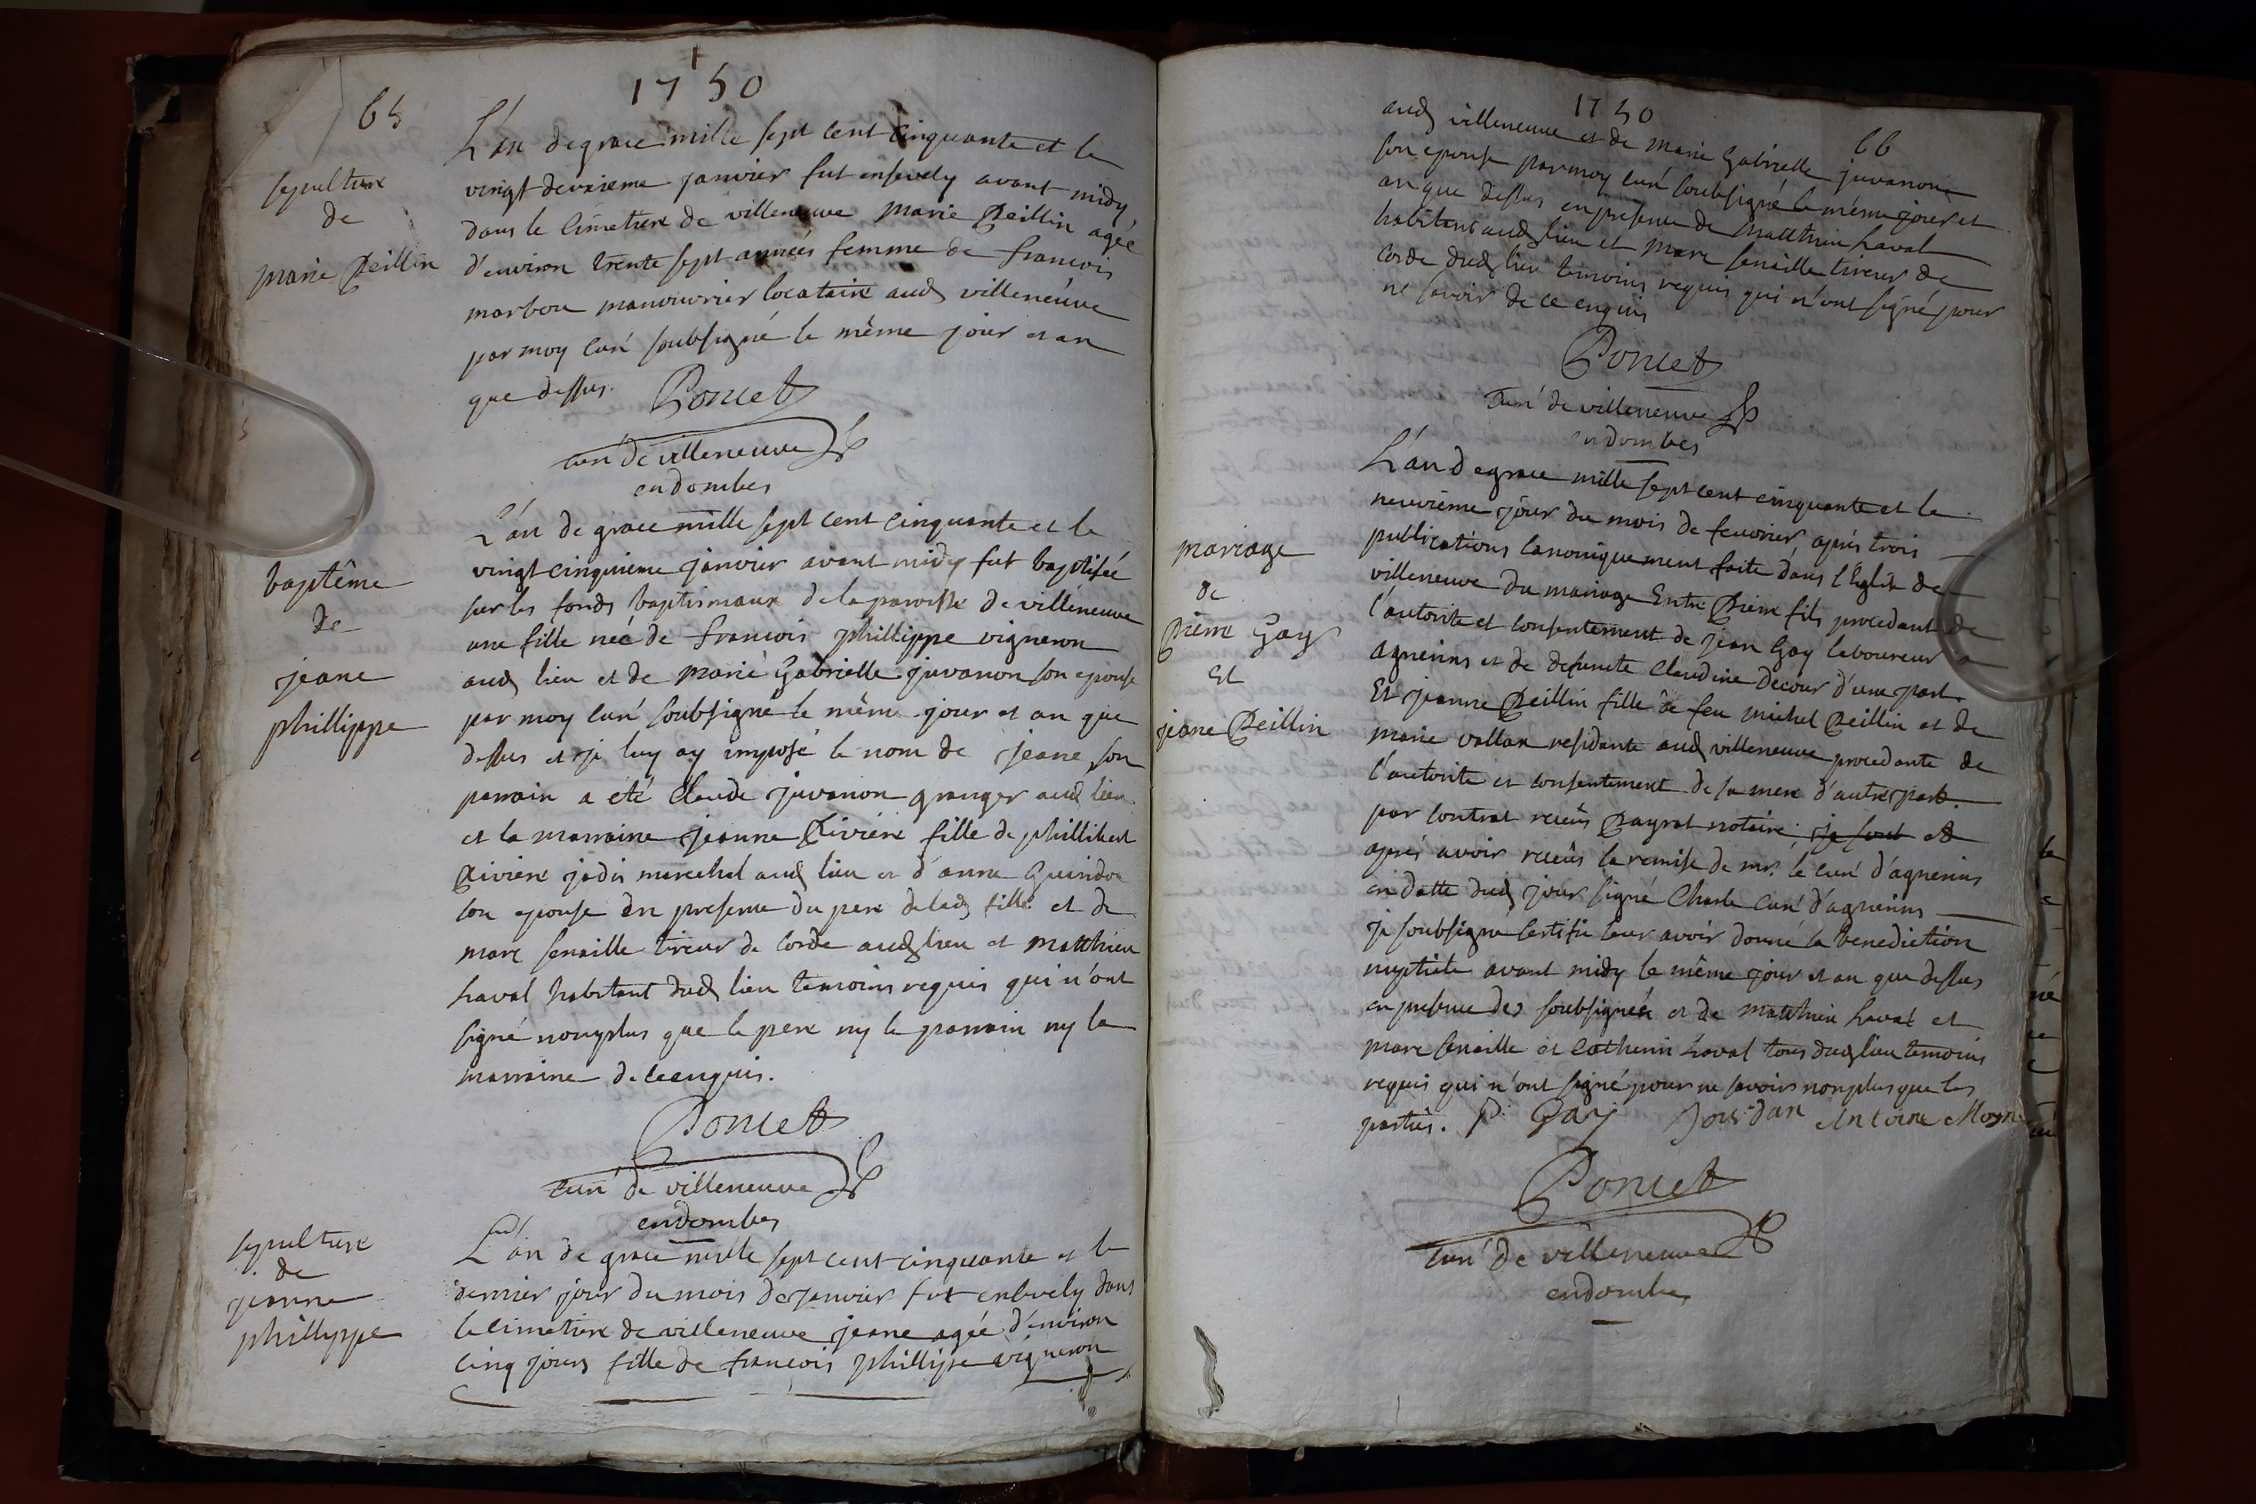 1750
65
sepulture
de
marie Peillin
L'an de grace mille sept cent cinquante et le
vingt deuxieme janvier fut ensevely avant midy
dans le cimetiere de villeneuve Marie Peillin agée
d'environ trente sept années femme de francois
marbou manouvrier locataire aud villeneuve
par moy curé soubsigné le même jour et an
que dessus. Poncet
curé de villeneuve
en dombes
baptême
de
jeane
phillippe
L'an de grace mille sept cent cinquante et le
vingt cinquieme janvier avant midy fut baptisée
sur les fonds baptismaux de la paroisse de villeneuve
une fille neé de francois phillippe vigneron
aud lieu et de marie Gabrielle juvanon son epouse
par moy curé soubsigné le même jour et an que
dessus et je luy ay imposé le nom de jeane son
parrain a eté Claude juvanon granger aud lieu
et la marraine jeanne Riviere fille de phillibert
Riviere jadis marechal aud lieu et d'anne Guindon
son epouse en presence du pere de lad fille et de
marc senaille tireur de corde aud lieu et matthieu
Laval habitant dud lieu temoins requis qui n'ont
signé nonplus que le pere ny le parrain ny la
marraine de ce enquis.
Poncet
curé de villeneuve
en dombes
sepulture
de
jeanne
phillippe
L'an de grace mille sept cent cinquante et le
dernier jour du mois de janvier fut ensevely dans
le cimetiere de villeneuve jeane agée d'environ
cinq jours fille de francois phillippe vigneron
1750
66
aud villeneuve et de marie Gabrielle juvanon
son epouse par moy curé soubsigné le même jour et
an que dessus en presence de Matthieu Laval
habitant aud lieu et Marc senaille tireur de
corde dud lieu temoins requis qui n'ont signé pour
ne savoir de ce enquis
Poncet
curé de villeneuve
en dombes
mariage
de
Pierre Gay
et
jeane Peillin
L'an de grace mille sept cent cinquante et le
neuvieme jour du mois de fevrier, après trois
publications canoniquement faite dans l'Eglise de
villeneuve du mariage Entre Pierre fils procedant de
l'autorite et consentement de jean Gay laboureur a
agnerins et de defuncte Claudine Decour d'une part
Et jeanne Peillin fille de feu michel Peillin et de
marie vallan residante aud villeneuve procedante de
l'autorite et consentement de sa mere d'autre part.
par contrat receus Payrat notaire, je sous et
après avoir receüs la remise de mr. le curé d'agnerins
en datte dud jour signé Charle curé d'agnerins
je soubsigné certifie leur avoir donné la benediction
nuptiale avant midy le même jour et an que dessus
en presence des soubsignés et de matthieu Laval et
marc senaille et Catherin Laval tous dud lieu temoins
requis qui n'ont signé pour ne savoir nonplus que les
parties. P. Gay Jourdan Antoine Moyn
Poncet
curé de villeneuve
en dombes